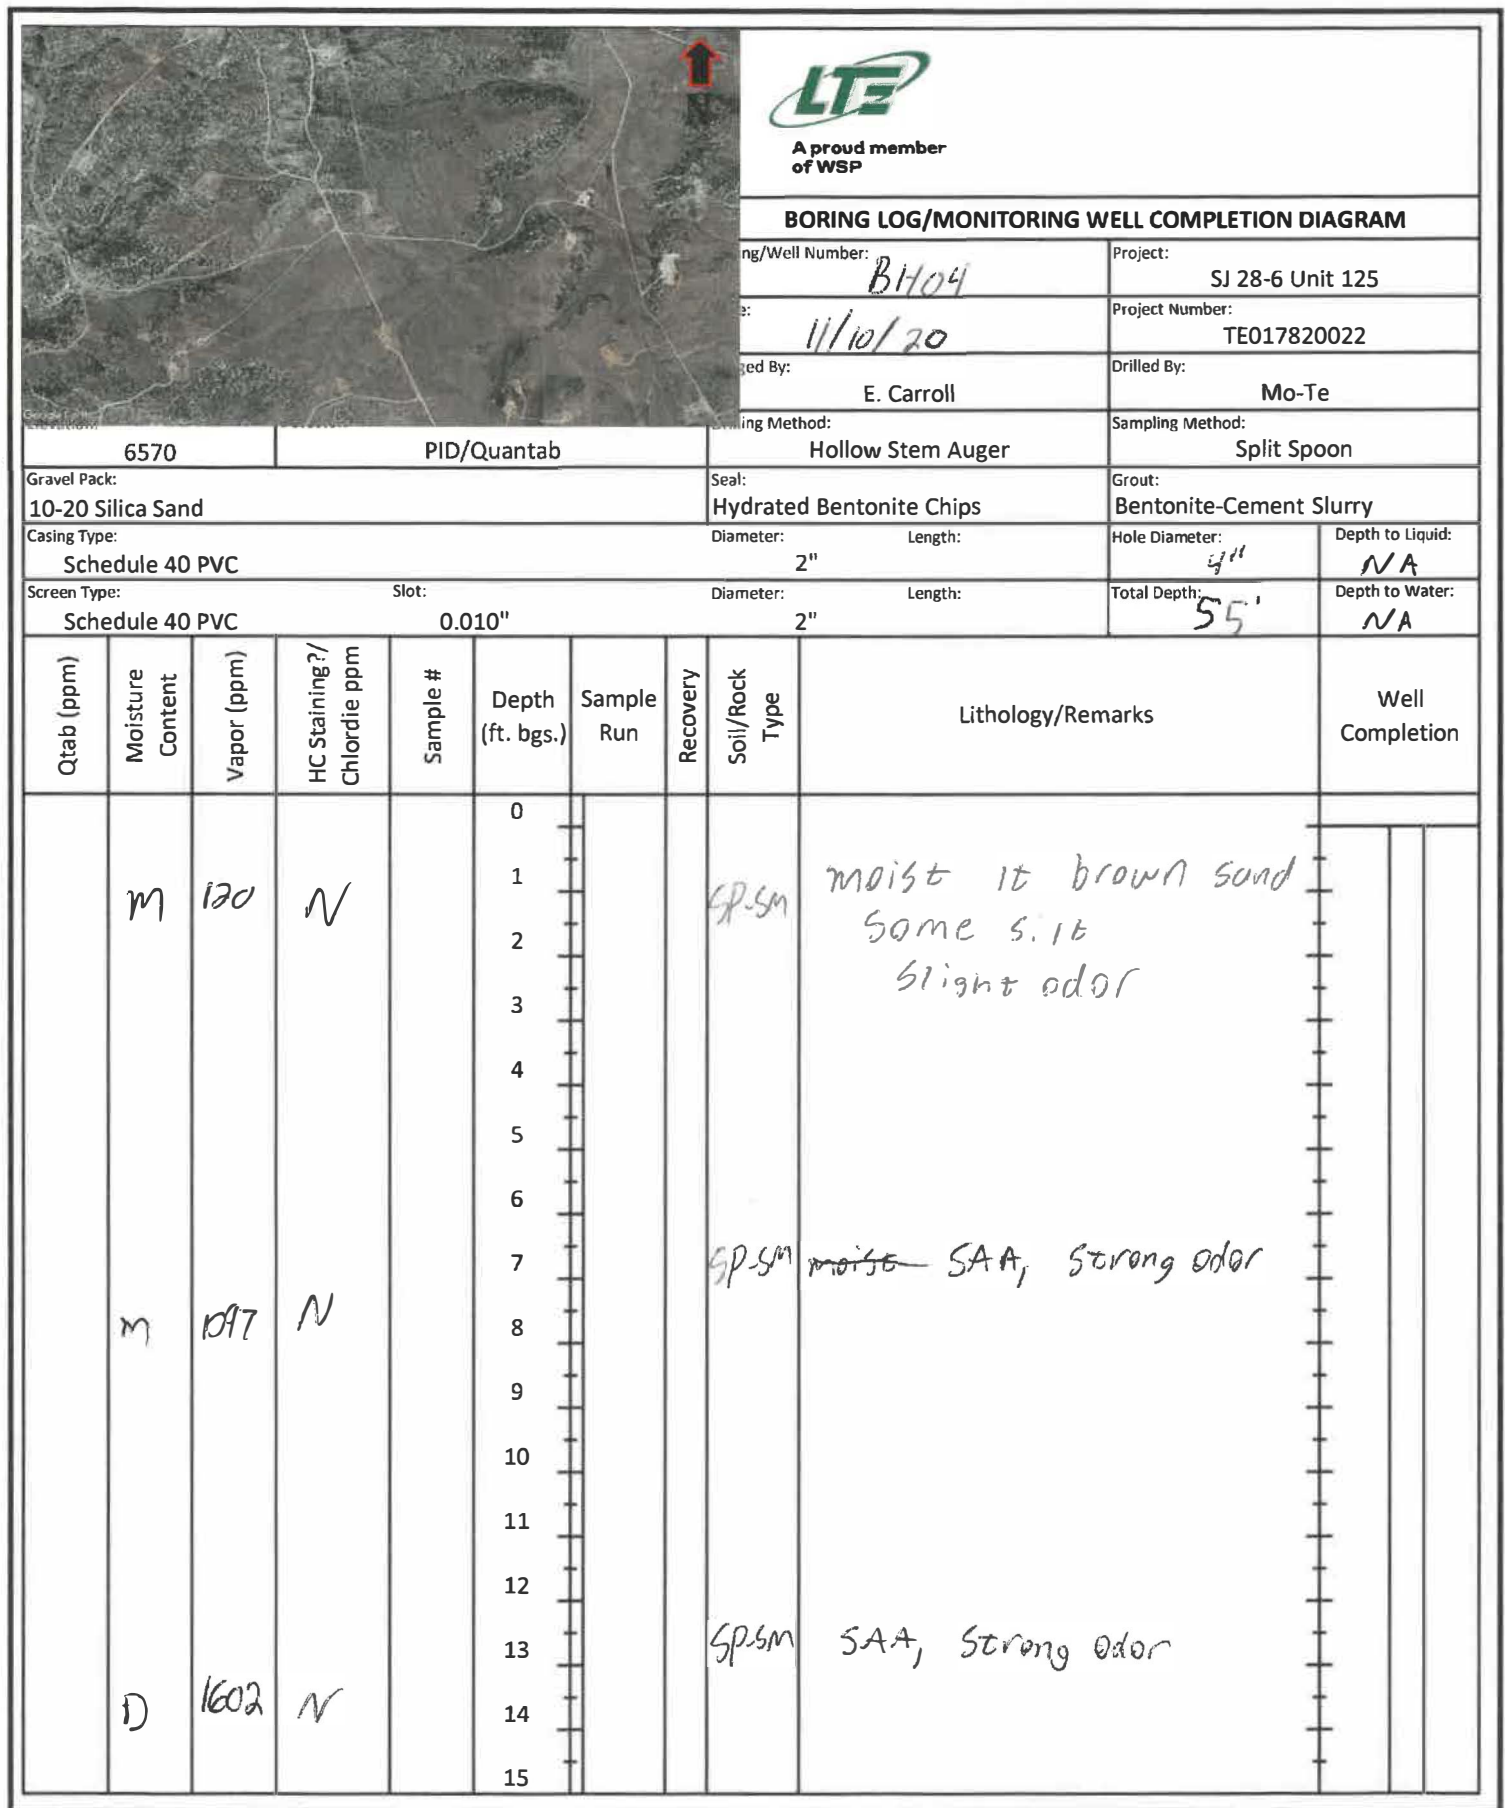 LTE
A proud member
of WSP
BORING LOG/MONITORING WELL COMPLETION DIAGRAM
ng/Well Number: BH04
Project: SJ 28-6 Unit 125
e: 11/10/20
Project Number: TE017820022
ged By: E. Carroll
Drilled By: Mo-Te
6570
PID/Quantab
ing Method: Hollow Stem Auger
Sampling Method: Split Spoon
Gravel Pack: 10-20 Silica Sand
Seal: Hydrated Bentonite Chips
Grout: Bentonite-Cement Slurry
Casing Type: Schedule 40 PVC
Diameter: 2"
Length:
Hole Diameter: 4"
Depth to Liquid: NA
Screen Type: Schedule 40 PVC
Slot: 0.010"
Diameter: 2"
Length:
Total Depth: 55'
Depth to Water: NA
Qtab (ppm)
Moisture Content
Vapor (ppm)
HC Staining?/ Chlordie ppm
Sample #
Depth (ft. bgs.)
Sample Run
Recovery
Soil/Rock Type
Lithology/Remarks
Well Completion
0
1
M 120 N SP-SM moist lt brown sand
2
some silt
slight odor
3
4
5
6
7 SP-SM moist SAA, strong odor
M 1097 N 8
9
10
11
12
13 SP-SM SAA, strong odor
D 1602 N 14
15